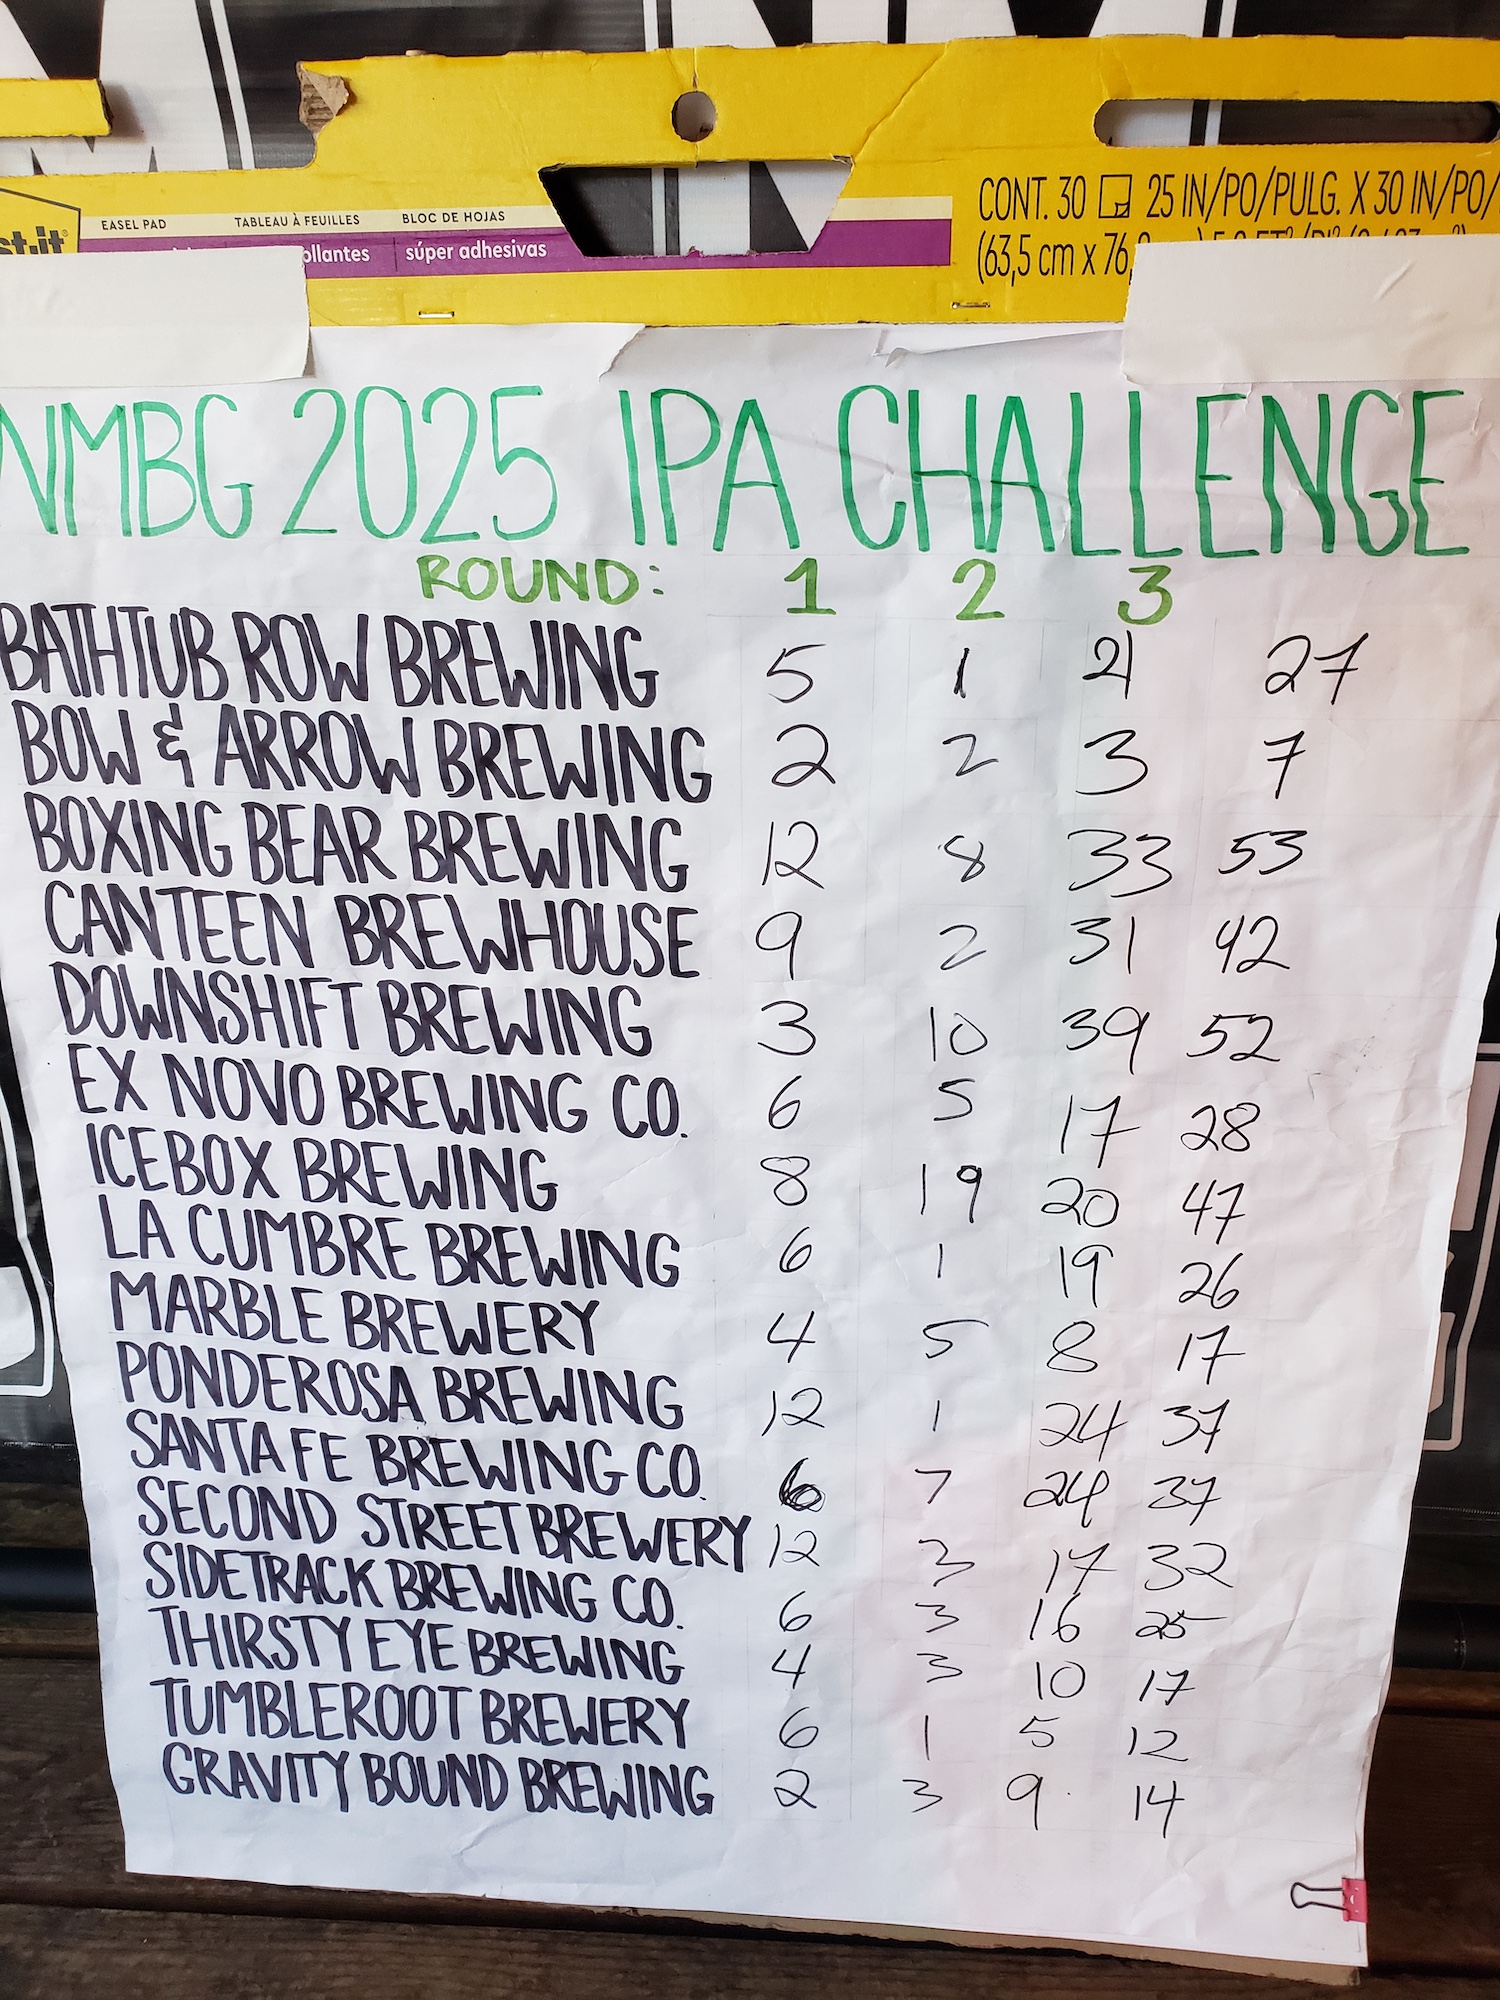 EASEL PAD TABLEAU À FEUILLES BLOC DE HOJAS
súper adhesivas
CONT. 30 25 IN/PO/PULG. X 30 IN/PO/
(63,5 cm x 76,
NMBG 2025 IPA CHALLENGE
ROUND: 1 2 3
BATHTUB ROW BREWING 5 1 21 27
BOW & ARROW BREWING 2 2 3 7
BOXING BEAR BREWING 12 8 33 53
CANTEEN BREWHOUSE 9 2 31 42
DOWNSHIFT BREWING 3 10 39 52
EX NOVO BREWING CO. 6 5 17 28
ICEBOX BREWING 8 19 20 47
LA CUMBRE BREWING 6 1 19 26
MARBLE BREWERY 4 5 8 17
PONDEROSA BREWING 12 1 24 37
SANTA FE BREWING CO. 6 7 24 37
SECOND STREET BREWERY 12 3 17 32
SIDETRACK BREWING CO. 6 3 16 25
THIRSTY EYE BREWING 4 3 10 17
TUMBLEROOT BREWERY 6 1 5 12
GRAVITY BOUND BREWING 2 3 9 14